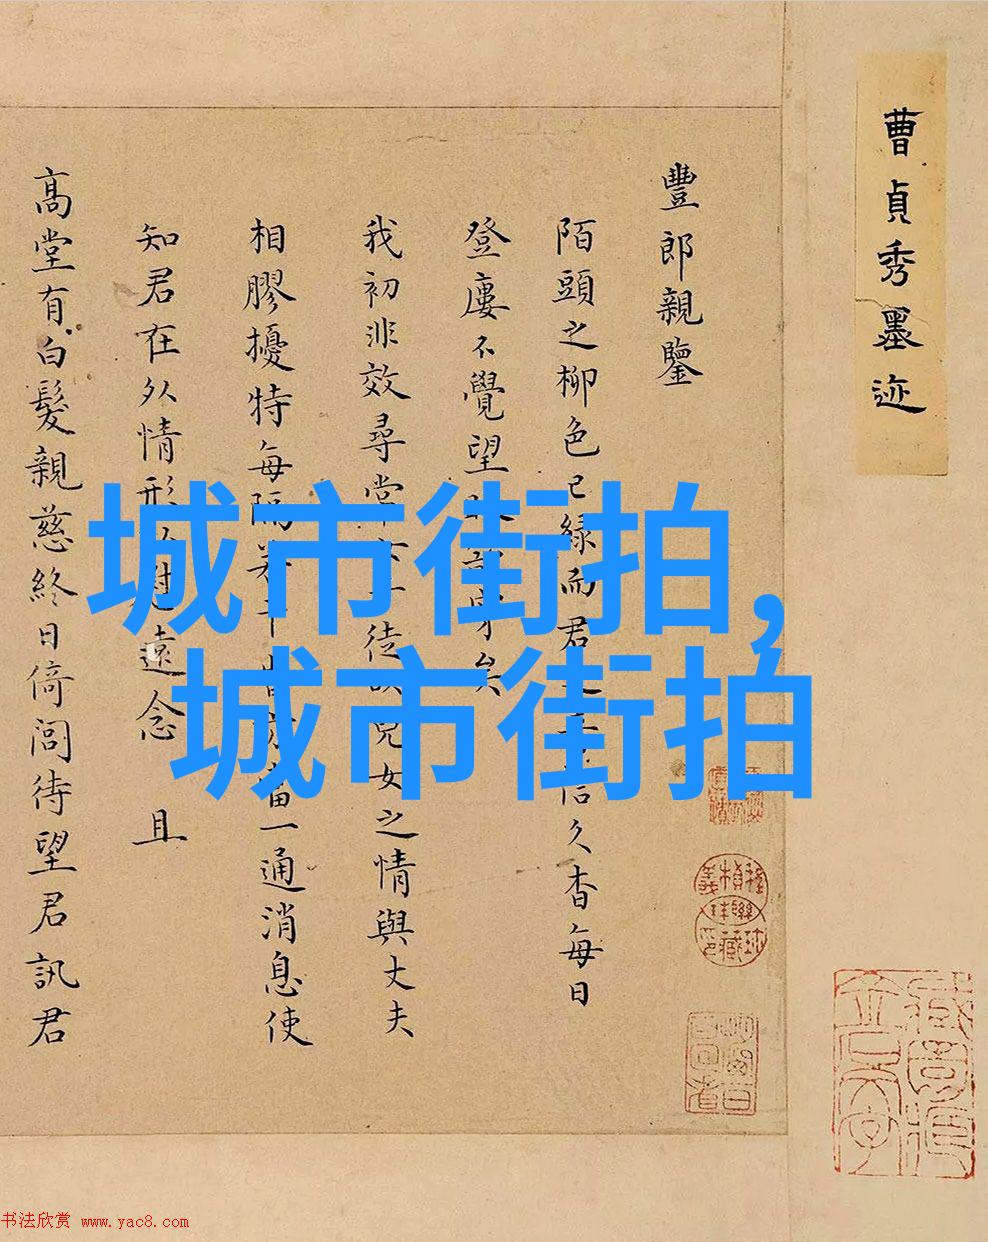 曹貞秀墨迹
豐郎親鑒
陌頭之柳色已緑而君信久杳每日
登廔不覺望穿矣
我初非效尋常徒兒女之情與丈夫
相膠擾特每隔一通消息使
知君在外情形遠念 且
高堂有白髮親慈終日倚閭待望君訊君
城市街拍,
城市街拍
书法欣赏 www.yac8.com